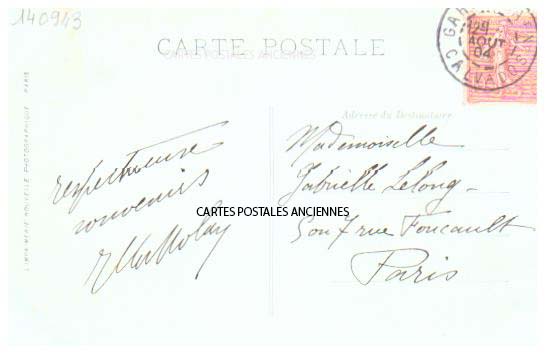 140943
CARTE POSTALE
CARTES POSTALES ANCIENNES
29
AOUT
04
CALVADOS
Adresse du Destinataire
L'IMPRIMERIE NOUVELLE PHOTOGRAPHIQUE - PARIS
Respectueux
souvenirs
Mademoiselle
Gabrielle Lelong
CARTES POSTALES ANCIENNES
7 rue Foucault
Paris